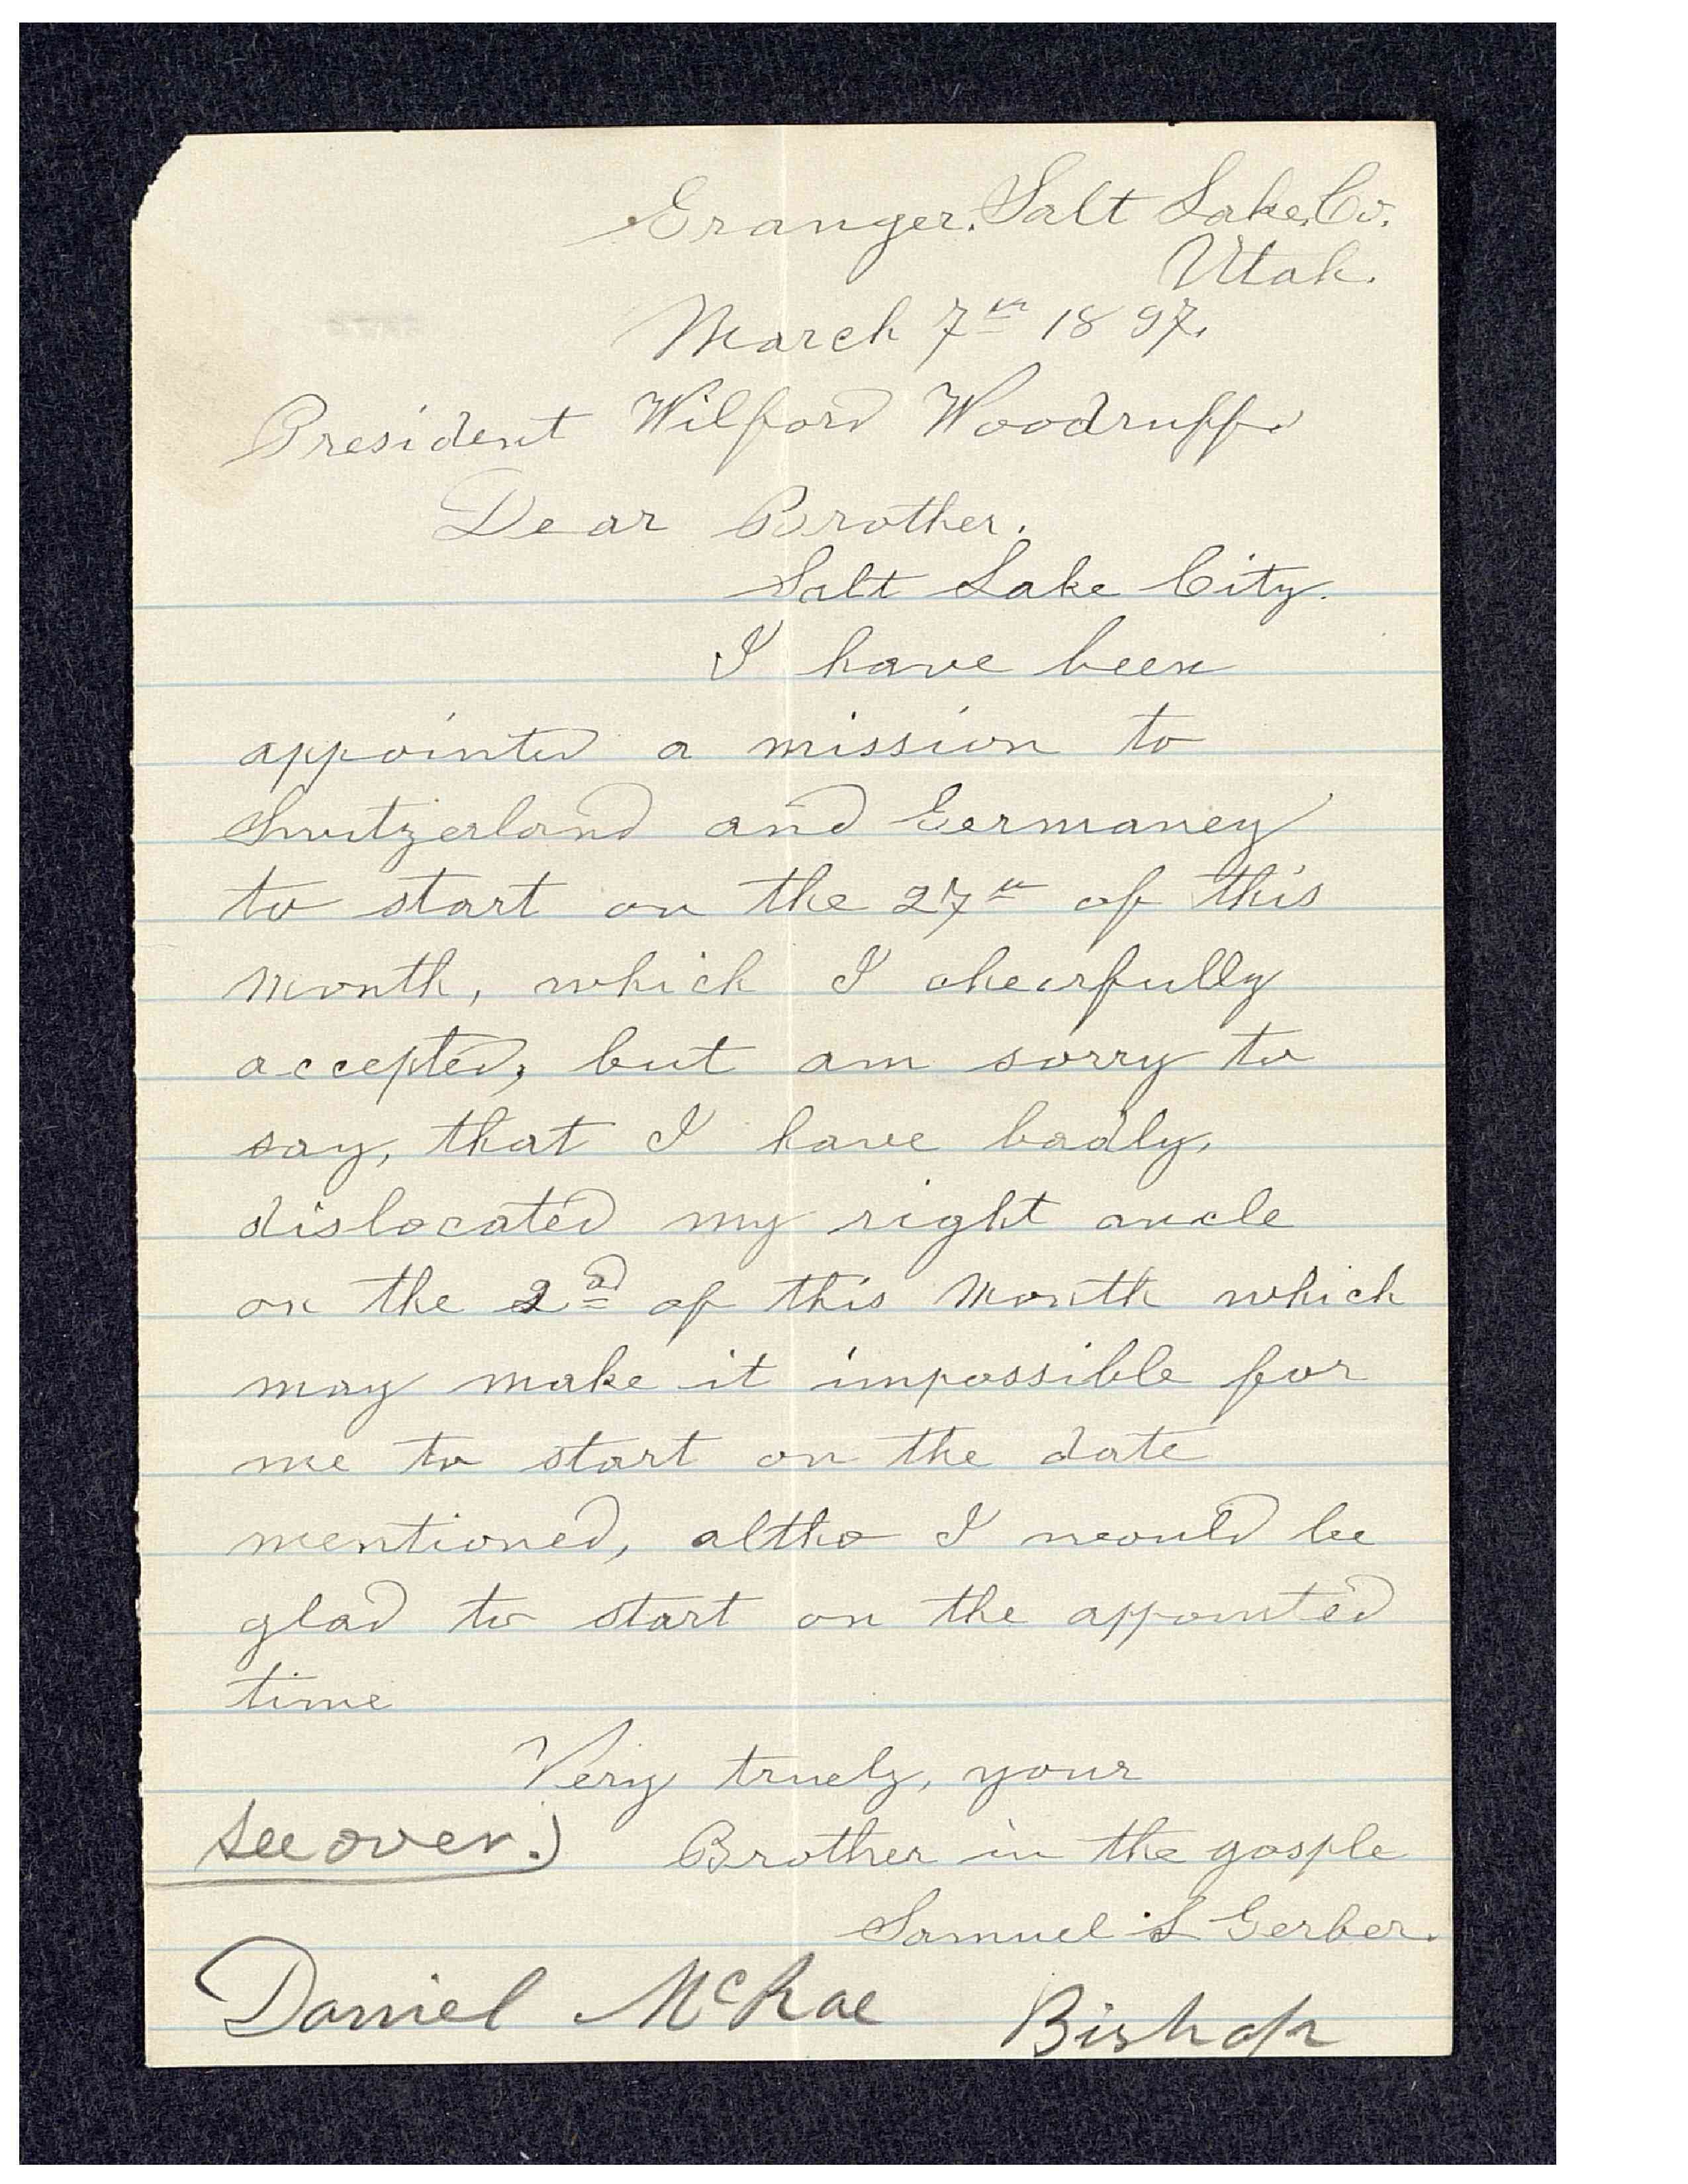 Granger, Salt Lake, Co.
Utah.
March 7th 1897.
President Wilford Woodruff.
Dear Brother.
Salt Lake City.
I have been
appointed a mission to
Switzerland and Germaney
to start on the 27th of this
month, which I cheerfully
accepted, but am sorry to
say, that I have badly,
dislocated my right ancle
on the 2nd of this month which
may make it impossible for
me to start on the date
mentioned, altho I would be
glad to start on the appointed
time
Very truely, your
see over.)
Brother in the gosple
Samuel S Gerber.
Daniel McRae Bishop